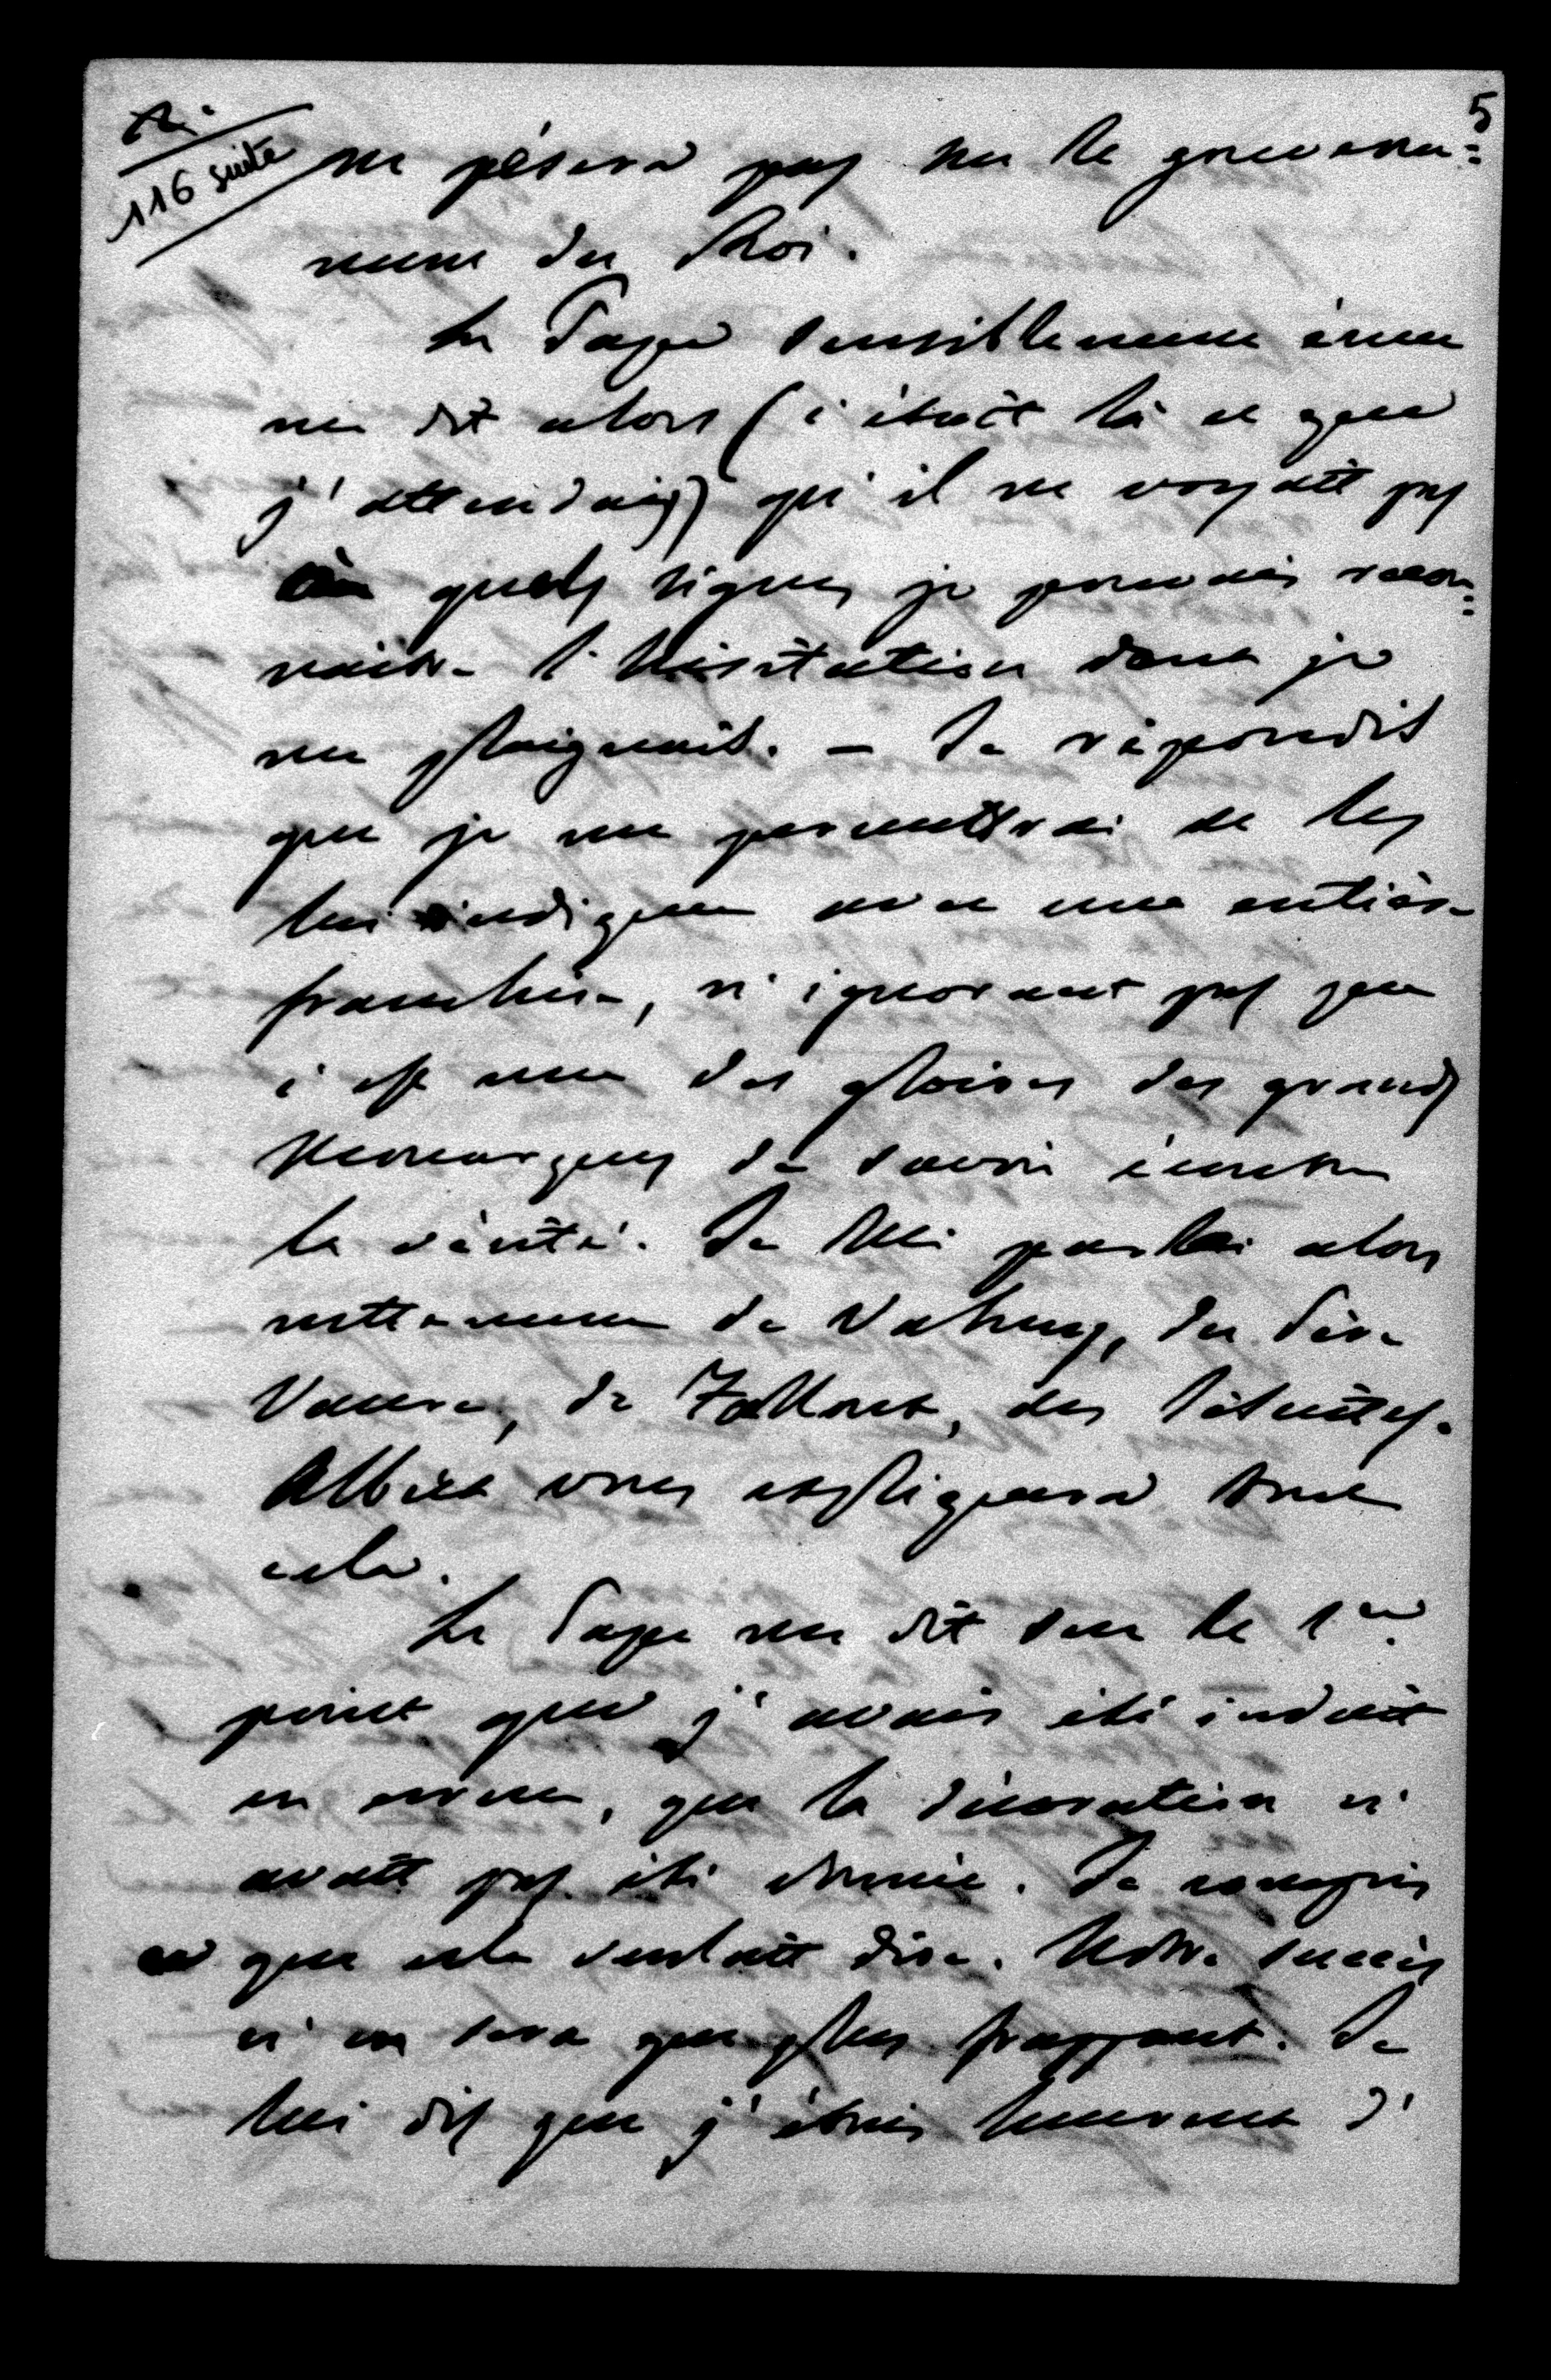 5
116 suite
ne pèsera pas sur le gouverne=
ment du Roi.
Le Pape sensiblement ému
me dit alors (c'était là ce que
j'attendais) qu'il ne voyait pas
à quels signes je pouvais recon=
naître l'hésitation dont je
me plaignais. — Je répondis
que je me permettrai de les
lui indiquer avec une entière
franchise, n'ignorant pas que
c'est une des gloires des grands
Monarques de savoir écouter
la vérité. Je lui parlai alors
nettement de Nahuys, du Père
de Falloux, des Jésuites.
Albéric vous expliquera tout
cela.
Le Pape me dit sur le 1er
point que j'avais été induit
en erreur, que la décoration n'
avait pas été donnée. Je compris
ce que cela voulait dire. Notre succès
n'en sera que plus frappant. Je
lui dis que j'étais heureux d'